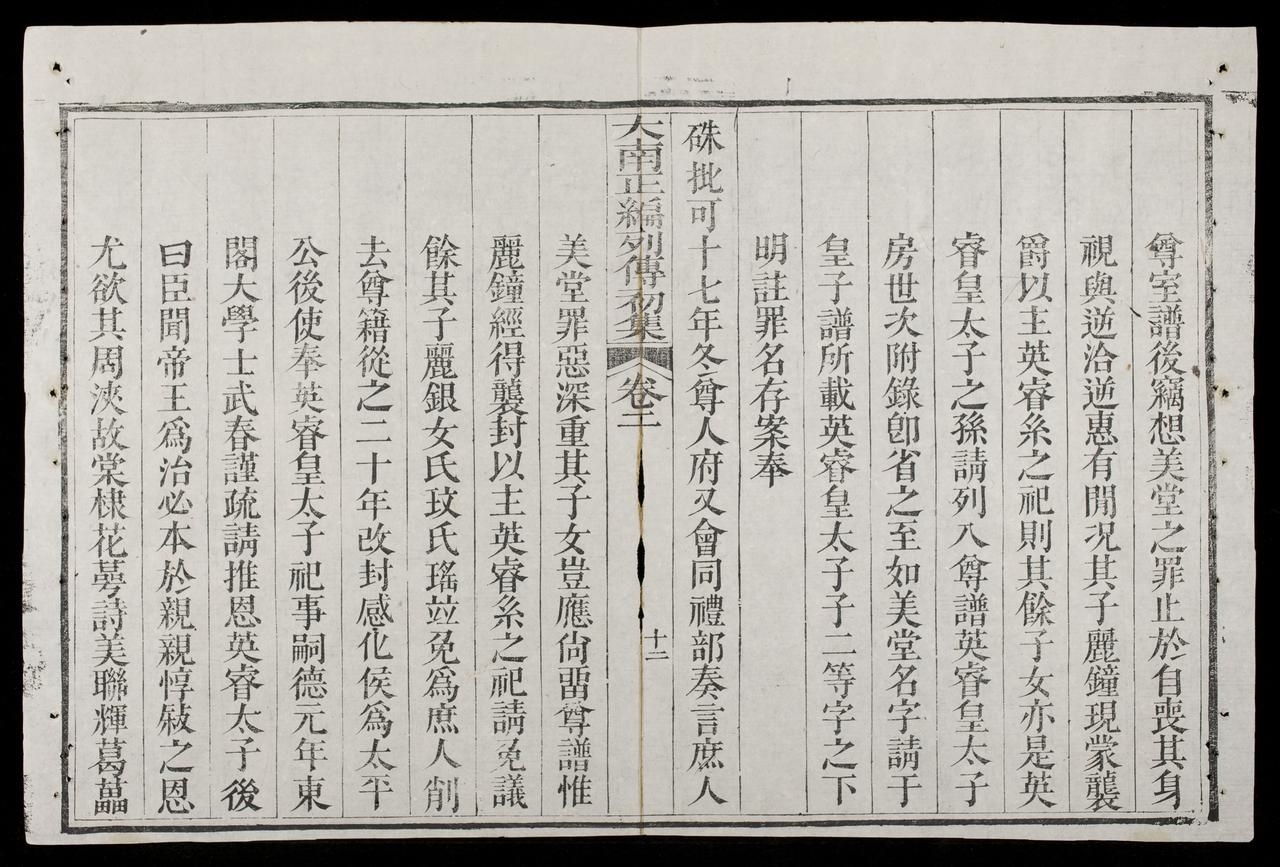 尊室譜後竊想美堂之罪止於自喪其身
視與逆洽逆惠有閒况其子麗鐘現蒙襲
爵以主英睿系之祀則其餘子女亦是英
睿皇太子之孫請列入尊譜英睿皇太子
房世次附錄卽省之至如美堂名字請于
皇子譜所載英睿皇太子子二等字之下
明註罪名存案奉
硃批可十七年冬尊人府又會同禮部奏言庶人
大南正編列傳初集 卷二 十二
美堂罪惡深重其子女豈應尙畱尊譜惟
麗鐘經得襲封以主英睿系之祀請免議
餘其子麗銀女氏玟氏瑤竝免爲庶人削
去尊籍從之二十年改封感化侯爲太平
公後使奉英睿皇太子祀事嗣德元年東
閣大學士武春謹疏請推恩英睿太子後
曰臣聞帝王爲治必本於親親惇敍之恩
尤欲其周浹故棠棣花萼詩美聯輝葛藟